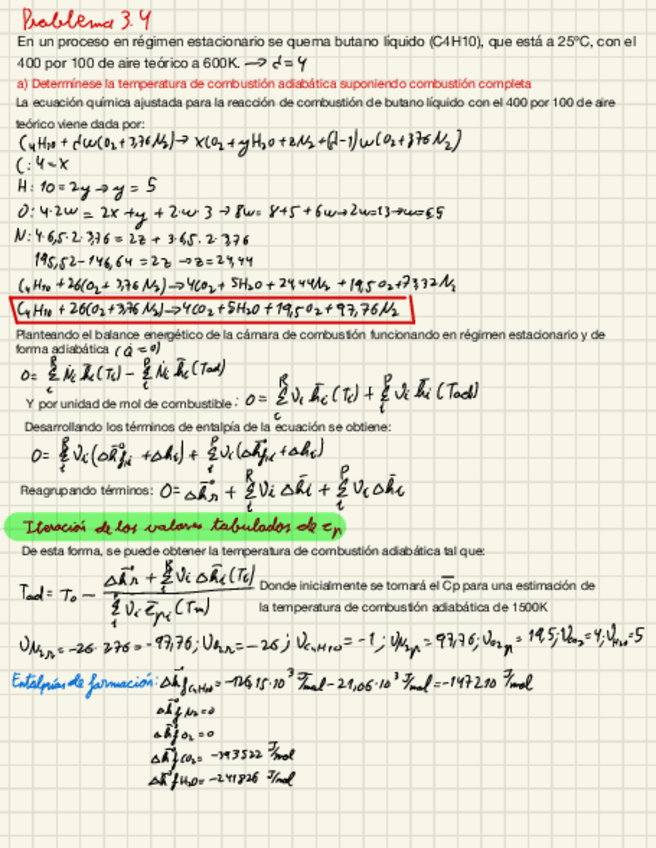 Problema 3.4
En un proceso en régimen estacionario se quema butano líquido (C4H10), que está a 25ºC, con el
400 por 100 de aire teórico a 600K. → d=4
a) Determínese la temperatura de combustión adiabática suponiendo combustión completa
La ecuación química ajustada para la reacción de combustión de butano líquido con el 400 por 100 de aire
teórico viene dada por:
C₄H₁₀ + dw(O₂+3,76N₂) → xCO₂ + yH₂O + zN₂ + (d-1)w(O₂+3,76N₂)
C: 4=x
H: 10=2y → y=5
O: 4·2w = 2x+y+2·w·3 → 8w=8+5+6w → 2w=13 → w=6,5
N: 4·6,5·2·3,76 = 2z + 3·6,5·2·3,76
195,52-146,64=2z → z=24,44
C₄H₁₀ + 26(O₂+3,76N₂) → 4CO₂ + 5H₂O + 24,44N₂ + 19,5O₂ + 73,32N₂
C₄H₁₀ + 26(O₂+3,76N₂) → 4CO₂ + 5H₂O + 19,5O₂ + 97,76N₂
Planteando el balance energético de la cámara de combustión funcionando en régimen estacionario y de
forma adiabática (Q̇=0)
0= Σ Ṅi h̄i(Ti) - Σ Ṅi h̄i(Tad)
Y por unidad de mol de combustible: 0= Σ νi h̄i(Ti) + Σ νi h̄i(Tad)
Desarrollando los términos de entalpía de la ecuación se obtiene:
0= Σ νi(Δh̄°f,i + Δhi) + Σ νi(Δh̄°f,i + Δhi)
Reagrupando términos: 0= Δh̄°r + Σ νi Δh̄i + Σ νi Δh̄i
Iteración de los valores tabulados de cp
De esta forma, se puede obtener la temperatura de combustión adiabática tal que:
Tad = T₀ - (Δh̄°r + Σ νi Δh̄i(Ti)) / (Σ νi c̄pi(Tm)) Donde inicialmente se tomará el C̄p para una estimación de
la temperatura de combustión adiabática de 1500K
νN₂,r=-26·3,76=-97,76; νO₂,r=-26; νC₄H₁₀=-1; νN₂,p=97,76; νO₂,p=19,5; νCO₂=4; νH₂O=5
Entalpías de formación: Δh̄°f C₄H₁₀=-126,15·10³ J/mol-21,06·10³ J/mol=-147210 J/mol
Δh̄f N₂=0
Δh̄f O₂=0
Δh̄f CO₂=-393522 J/mol
Δh̄f H₂O=-241826 J/mol